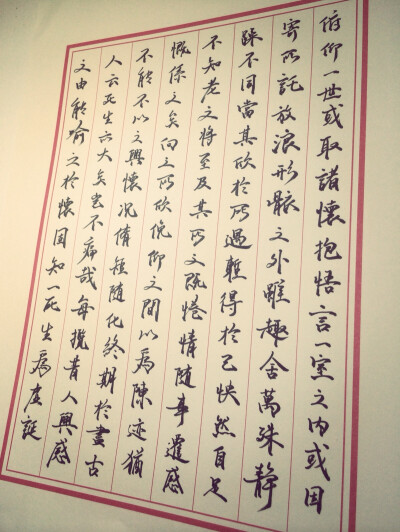 俯仰一世或取諸懷抱悟言一室之内或因
寄所託放浪形骸之外雖趣舍萬殊靜
躁不同當其欣於所遇暫得於己快然自足
不知老之將至及其所之既惓情隨事遷感
慨係之矣向之所欣俛仰之間以為陳迹猶
不能不以之興懷况脩短隨化終期於盡古
人云死生亦大矣豈不痛哉每攬昔人興感
之由能喻之於懷固知一死生為虛誕